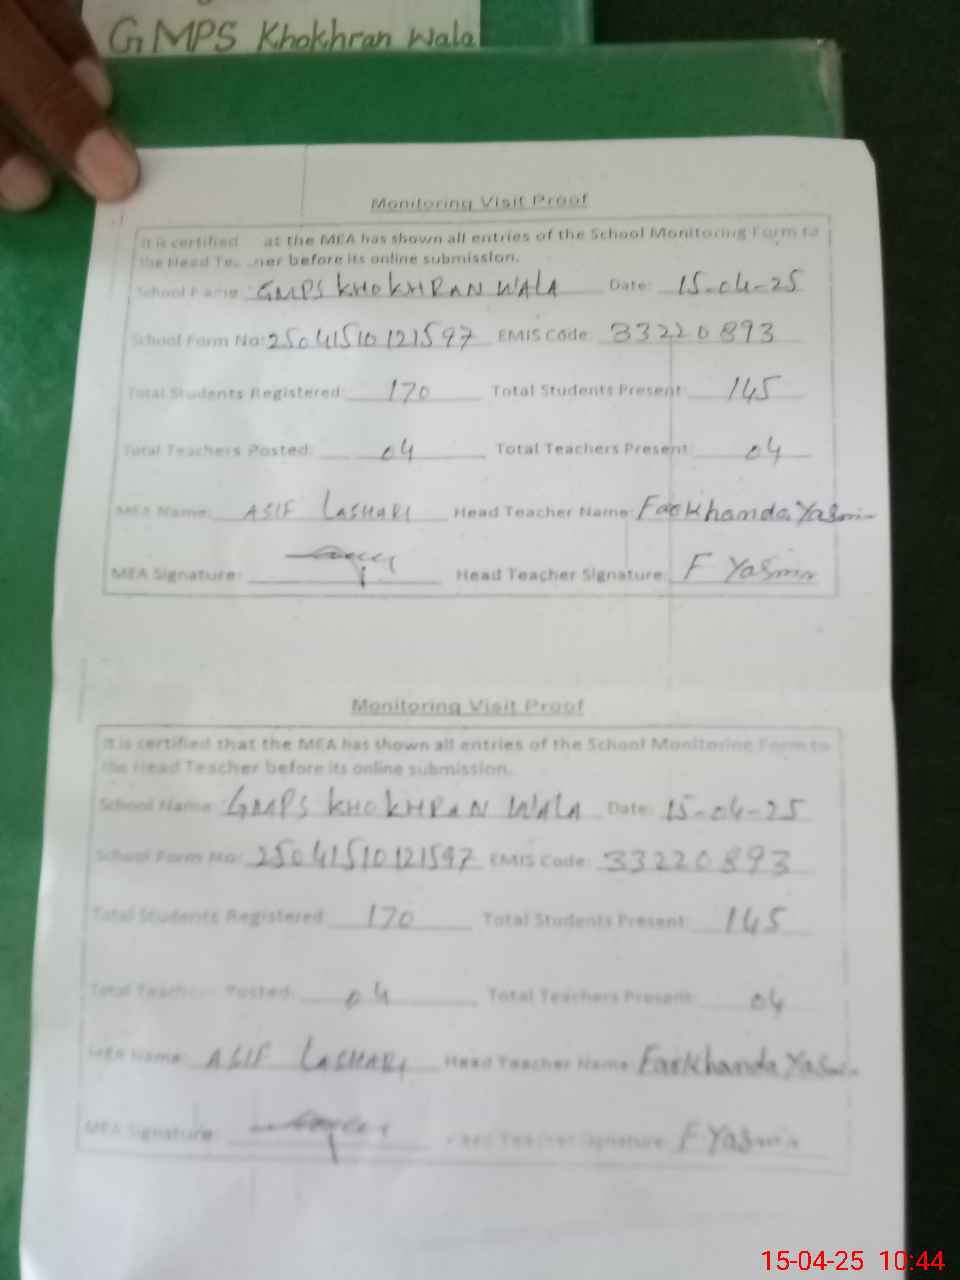 GMPS Khokhran Wala
Monitoring Visit Proof
It is certified at the MEA has shown all entries of the School Monitoring Form to
the Head Te ner before its online submission.
School Name: GMPS KHOKHRAN WALA Date: 15-04-25
School Form No: 25041510121597 EMIS Code: 33220893
Total Students Registered: 170 Total Students Present: 145
Total Teachers Posted: 04 Total Teachers Present: 04
MEA Name: ASIF LASHARI Head Teacher Name: Farkhanda Yasmin
MEA Signature: Head Teacher Signature: F Yasmin
Monitoring Visit Proof
It is certified that the MEA has shown all entries of the School Monitoring Form to
the Head Teacher before its online submission.
School Name: GMPS KHOKHRAN WALA Date: 15-04-25
School Form No: 25041510121597 EMIS Code: 33220893
Total Students Registered: 170 Total Students Present: 145
Total Teachers Posted: 04 Total Teachers Present: 04
MEA Name: ASIF LASHARI Head Teacher Name: Farkhanda Yasmin
MEA Signature: Head Teacher Signature: F Yasmin
15-04-25 10:44